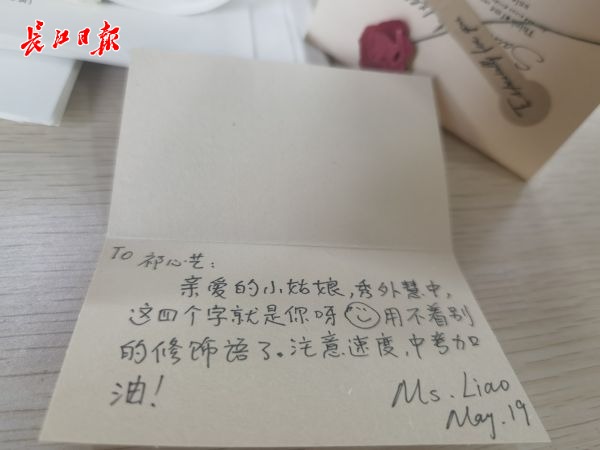 长江日报
Especially for you
To 祁心艺:
亲爱的小姑娘,秀外慧中,
这四个字就是你呀用不着别
的修饰语了。注意速度,中考加
油!
Ms. Liao
May. 19